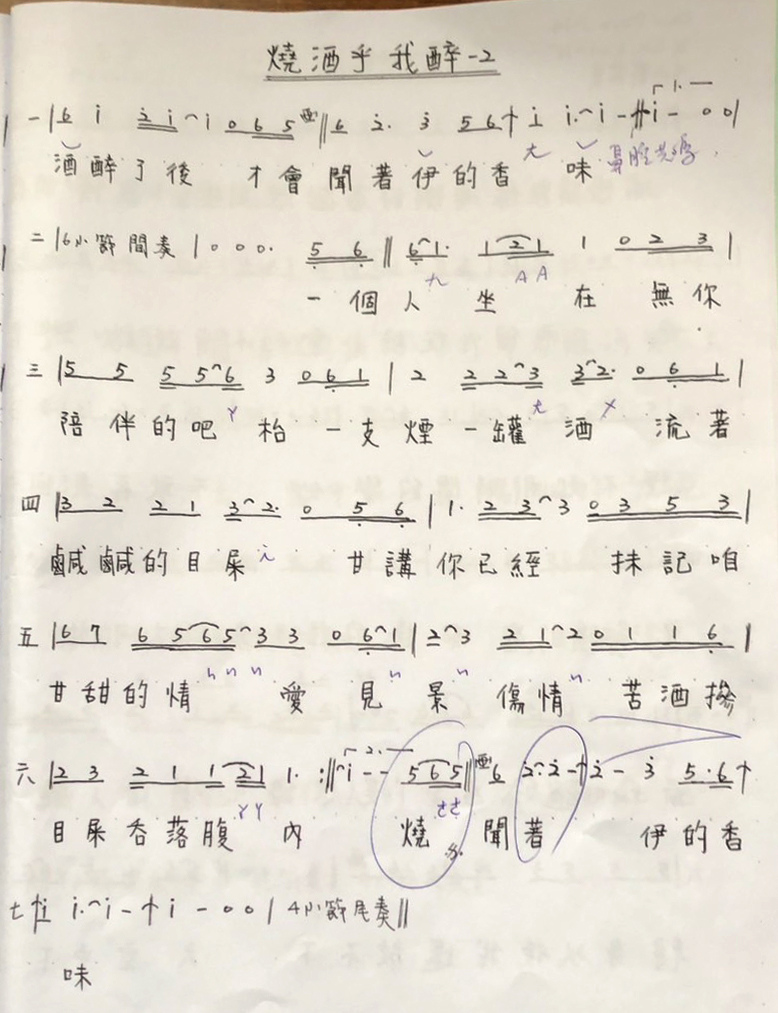 燒酒乎我醉-2
一 |6 i 2 i i 0 6 5 || 6 2. 3 5 6 i i. i - || i - 0 0 |
酒醉了後 才會聞著伊的香 味
二 |6小節間奏 |0 0 0. 5 6 || 6 1. 1 2 1 1 0 2 3 |
一個人 坐 在 無你
三 |5 5 5 5 6 3 0 6 1 | 2 2 2 3 3 2. 0 6 1 |
陪伴的吧枱 一支煙一罐酒 流著
四 |3 2 2 1 3 2. 0 5 6 | 1. 2 3 3 0 3 5 3 |
鹹鹹的目屎 甘講你已經 抹記咱
五 |6 7 6 5 6 5 3 3 0 6 1 | 2 3 2 1 2 0 1 1 6 |
甘甜的情 愛 見景 傷情 苦酒摻
六 |2 3 2 1 1 2 1 1. :|| i - - 5 6 5 || 6 2. 2 - 2 - 3 5. 6
目屎吞落腹 內 燒 聞著 伊的香
七 i i. i - i - 0 0 | 4小節尾奏 ||
味